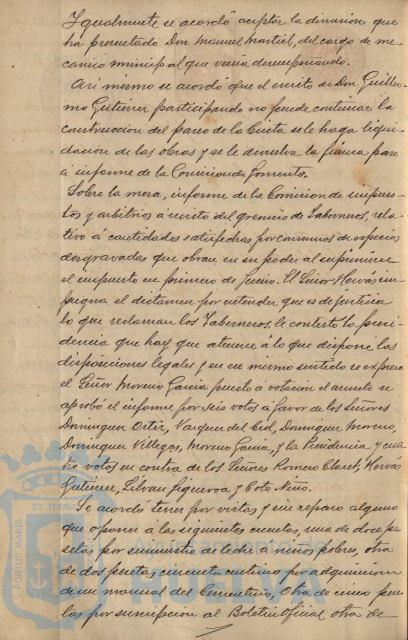 Igualmente, se acordó aceptar la dimision que
ha presentado Don Manuel Martiel, del cargo de me-
canico municipal que venia desempeñando.
Asi mismo se acordó que el escrito de Don Guiller-
mo Gutierrez participando no puede continuar la
construccion del paseo de la Cinta se le haga liqui-
dacion de las obras y se le devuelva la fianza pase
á informe de la Comision de Fomento.
Sobre la mesa, informe de la Comision de impues-
tos y arbitrios a escrito del gremio de Taberneros, rela-
tivo á cantidades satisfechas por consumos de especies
desgravadas que obran en su poder al suprimirse
el impuesto en primero de Junio. El Señor Hervás im-
pugna el dictamen por entender que es de justicia
lo que reclaman los Taberneros, le contestó la presi-
dencia que hay que atenerse á lo que dispone las
disposiciones legales y en su mismo sentido se expresa
el Señor Moreno Garcia puesto á votacion el asunto se
aprobó el informe por seis votos á favor de los Señores
Dominguez Ortiz, Vazquez del Cid, Dominguez Moreno,
Dominguez Villegas, Moreno Garcia, y la Presidencia y cua-
tro votos en contra de los Señores Romero Claret, Hervás
Gutierrez, Figueroa y Coto Niño.
Se acordo tener por vistas y sin reparo alguno
que oponer á las siguientes cuentas, una de doce pe-
setas por suministro de leche á niños pobres, otra
de dos pesetas cincuenta centimos por adquisicion
de un manual del Consultivo, Otra de cinco pese-
tas por suscripcion al Boletin Oficial, otra de
PORTUS MARIS
ET TERRAE
HUELVA